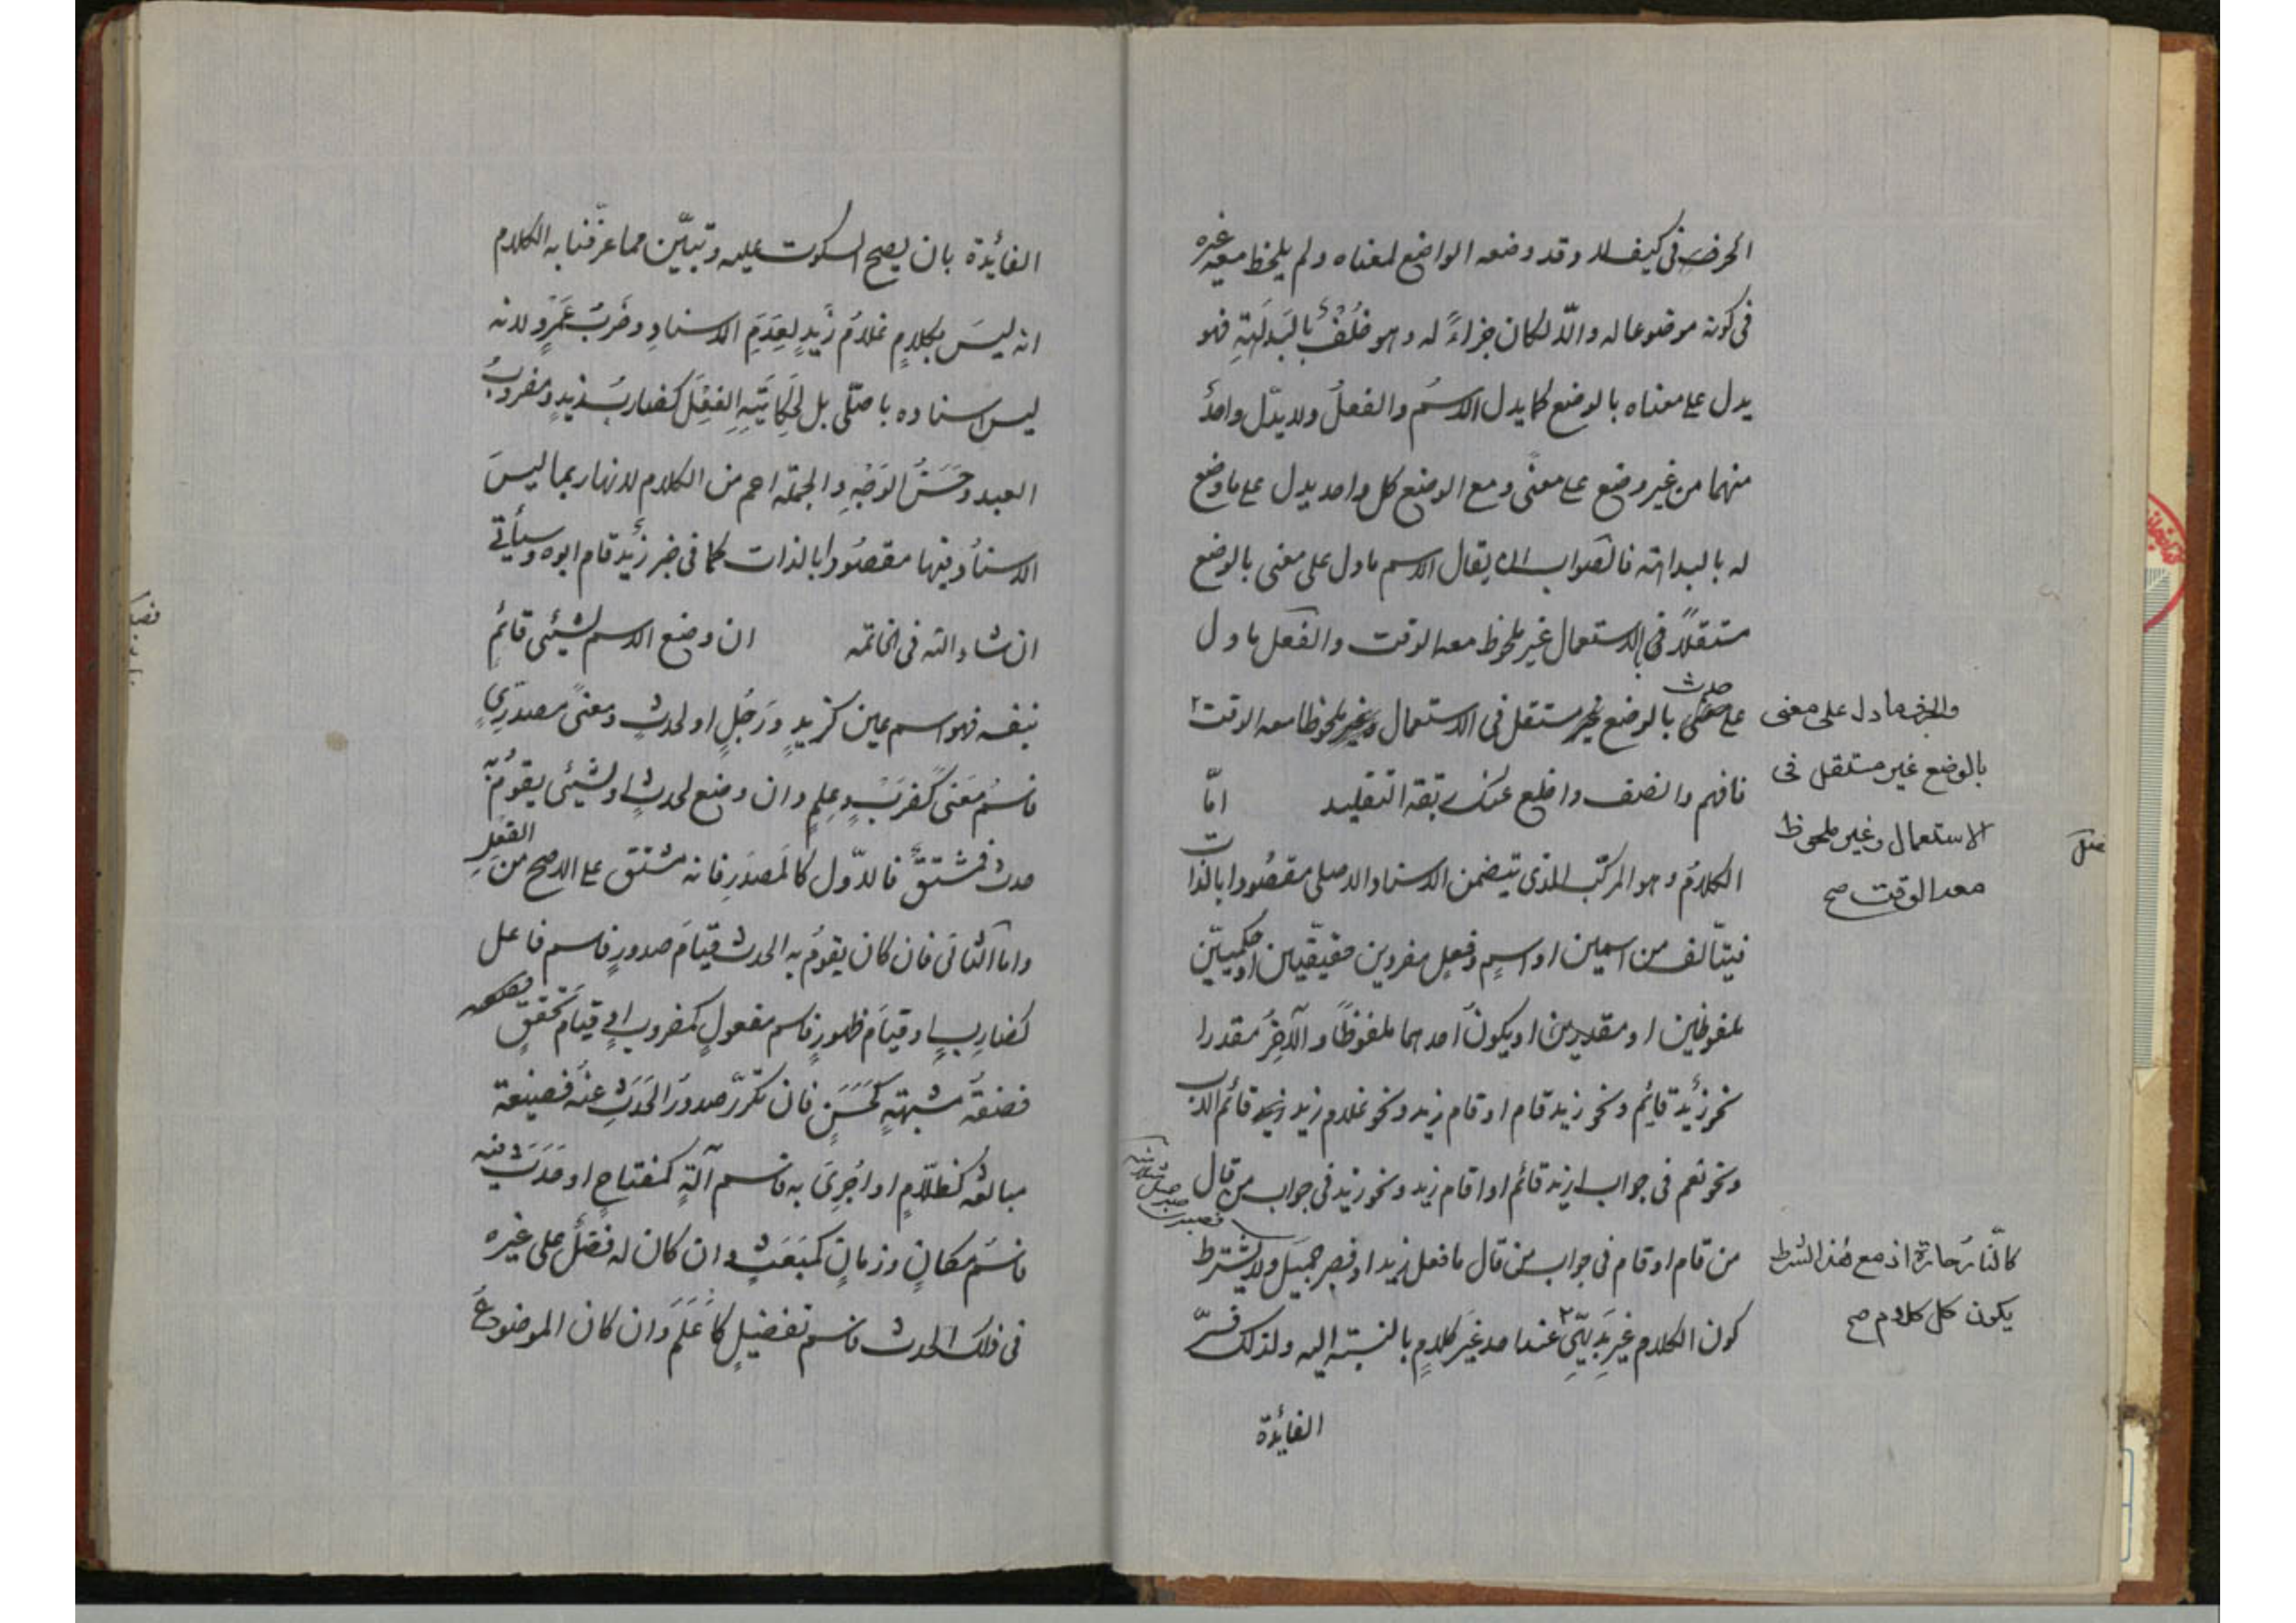 الحرف فی کیف لا و قد وضعه الواضع لمعناه و لم یلحظ معه غیره
فی کونه موضوعا له و الّا لکان جزاءً له و هو خُلْفٌ بالبَدلَهَةِ فهو
یدل علی معناه بالوضع کما یدل الاسمُ و الفعلُ و لا یدّل واحدٌ
منهما من غیر وضع علی معنًی و مع الوضع کل واحد یدل علی ما وضع
له بالبداهته فالصَواب ان یقال الاسم ما دل علی معنی بالوضع
مستقلاً فی الاستعمال غیر ملحوظ معه الوقت و الفعل ما دل
علی حدث بالوضع غیر مستقل فی الاستعمال و ملحوظا معه الوقت ٢
والحرف ما دل علی معنی
بالوضع غیر مستقل فی
الاستعمال و غیر ملحوظ
معه الوقت صح
فافهم و انصف و اخلع عنک ربقة التقلید امّا
الکلامُ و هو المرکّب الذی یتضمن الاسناد الاصلی مقصُودا بالذات
فیتألف من اسمین او اسمٍ و فعلٍ مفردین حقیقّیین او حکمیّین
ملفوظین او مقدرین او یکونُ احدهما ملفوظًا و الآخِرُ مقدرا
نحو زیْدٌ قایِم و نحو زید قام او قام زید و نحو غلام زید زید قائم الاب
و نحو نعم فی جواب ازید قائم او اقام زید و نحو زید فی جواب من قال
من قام او قام فی جواب من قال ما فعل زید او فصبر جمیَل و لا یشترط
کون الکلام غیرَ بَدیّهیِّ ٢ عند احد غیَر کلامٍ بالنسبته الیه و لذلک فسّر
کالنّارُ حارة اذ مع هذا الشرط
یکون کل کلام صح
الفایٔدة
الفایٔدة بان یصح السکوت علیه و تبیّن مما عرّفنا به الکلام
انه لیسَ بکلامٍ غلامُ زیدٍ لِعَدَمِ الاسنادِ و ضَربُ عَمْرٍو لانه
لیس اسناده باصلّی بل لِحکایَتَهِ الفِعْلَ کضاربُ زیدٍ و مضروبُ
العبد و حَسَنُ الوَجْهِ و الجملة اعم من الکلام لانها ربما لیسَ
الاسنادُ فیها مقصُودا بالذات کما فی خبر زَیْد قام ابوه و سیأتے
ان شاء الله فی الخاتمه ان وضع الاسم لشیئی قائمٍ
بنفسه فهو اسم عین کزیدٍ و رَجُلٍ او لحدثٍ و معنًی مصدَرِیٍ
فاسُم مَعنَی کَضَربٍ و عِلمٍ و ان وضع لحدثٍ او لشیئی یقومُ به
حدث فمشتقٌّ فالاوّل کالمَصدَرِ فانه مشتق علی الاصح من الفعلِ
و اما الثانی فان کان یقومُ به الحدث قیامَ صدورٍ فاسم فاعل
کضارِبٍ او قیامَ ظهورٍ فاسم مفعولٍ کمضروبٍ او قیام تحققٍ
فصفةٌ مشبهتهٍ کَحَسَنٍ فان تکرّر صدورُ الحَدَثِ عنهُ فصیغة
مبالغه کظلّامٍ او اجُرِیَ به فاسم آلةٍ کمفتاحٍ او حَدَثَ فیه
فاسُم مکانٍ و زمانٍ کمبَعَثٍ و ان کان له فضلٌ علی غیره
فی ذلک الحدث فاسم تفضیلٍ کأعَلَمَ و ان کان الموضوعُ